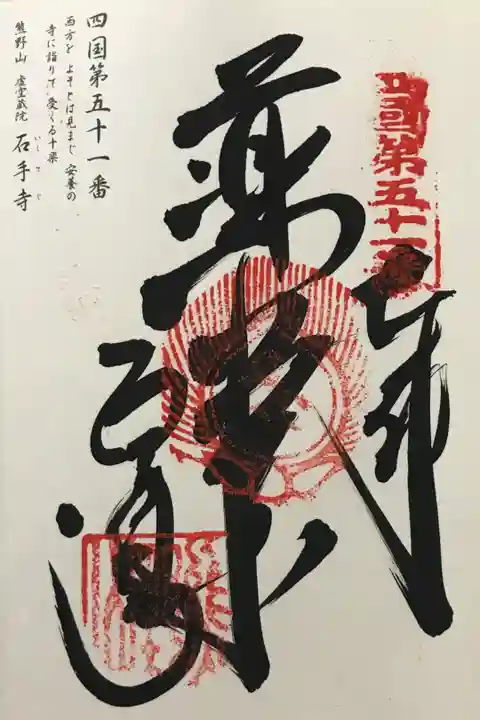 四國第五十一
奉拝
薬師
四国第五十一番
西方を よそとは見まじ 安養の
寺に詣りて 受くる十楽
熊野山 虚空蔵院 石手寺
いしてじ